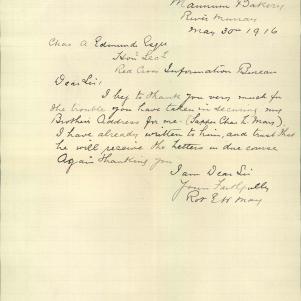 Mannum Bakery
River Murray
May 30th 1916
Chas A Edmund Esqre
Honl Secty
Red Cross Information Bureau
Dear Sir;
I beg to thank you very much for
the trouble you have taken in securing my
Brothers Address for me. (Sapper Chas L May),
I have already written to him, and trust that
he will receive the Letters in due course
Again thanking you
I am Dear Sir
Yours Faithfully
Robt E W May